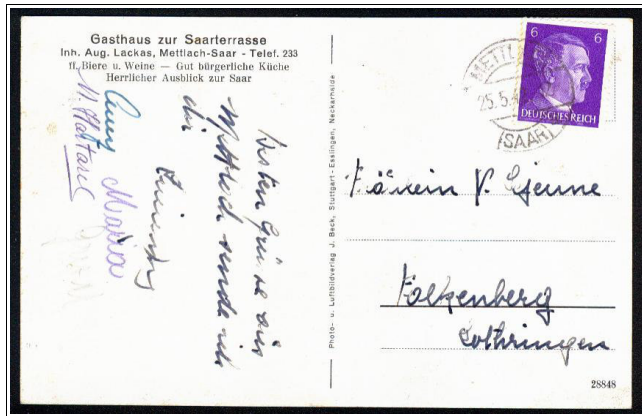 Gasthaus zur Saarterrasse
Inh. Aug. Lackas, Mettlach-Saar - Telef. 233
ff. Biere u. Weine — Gut bürgerliche Küche
Herrlicher Ausblick zur Saar
Besten Grüsse aus
Mettlach sendet euch
die
Anny
Maria
Photo- u. Luftbildverlag J. Beck, Stuttgart - Esslingen, Neckarhalde
6 6
DEUTSCHES REICH
METTL
25.5.4
(SAAR)
Fräulein
Falkenberg
Lothringen
28848